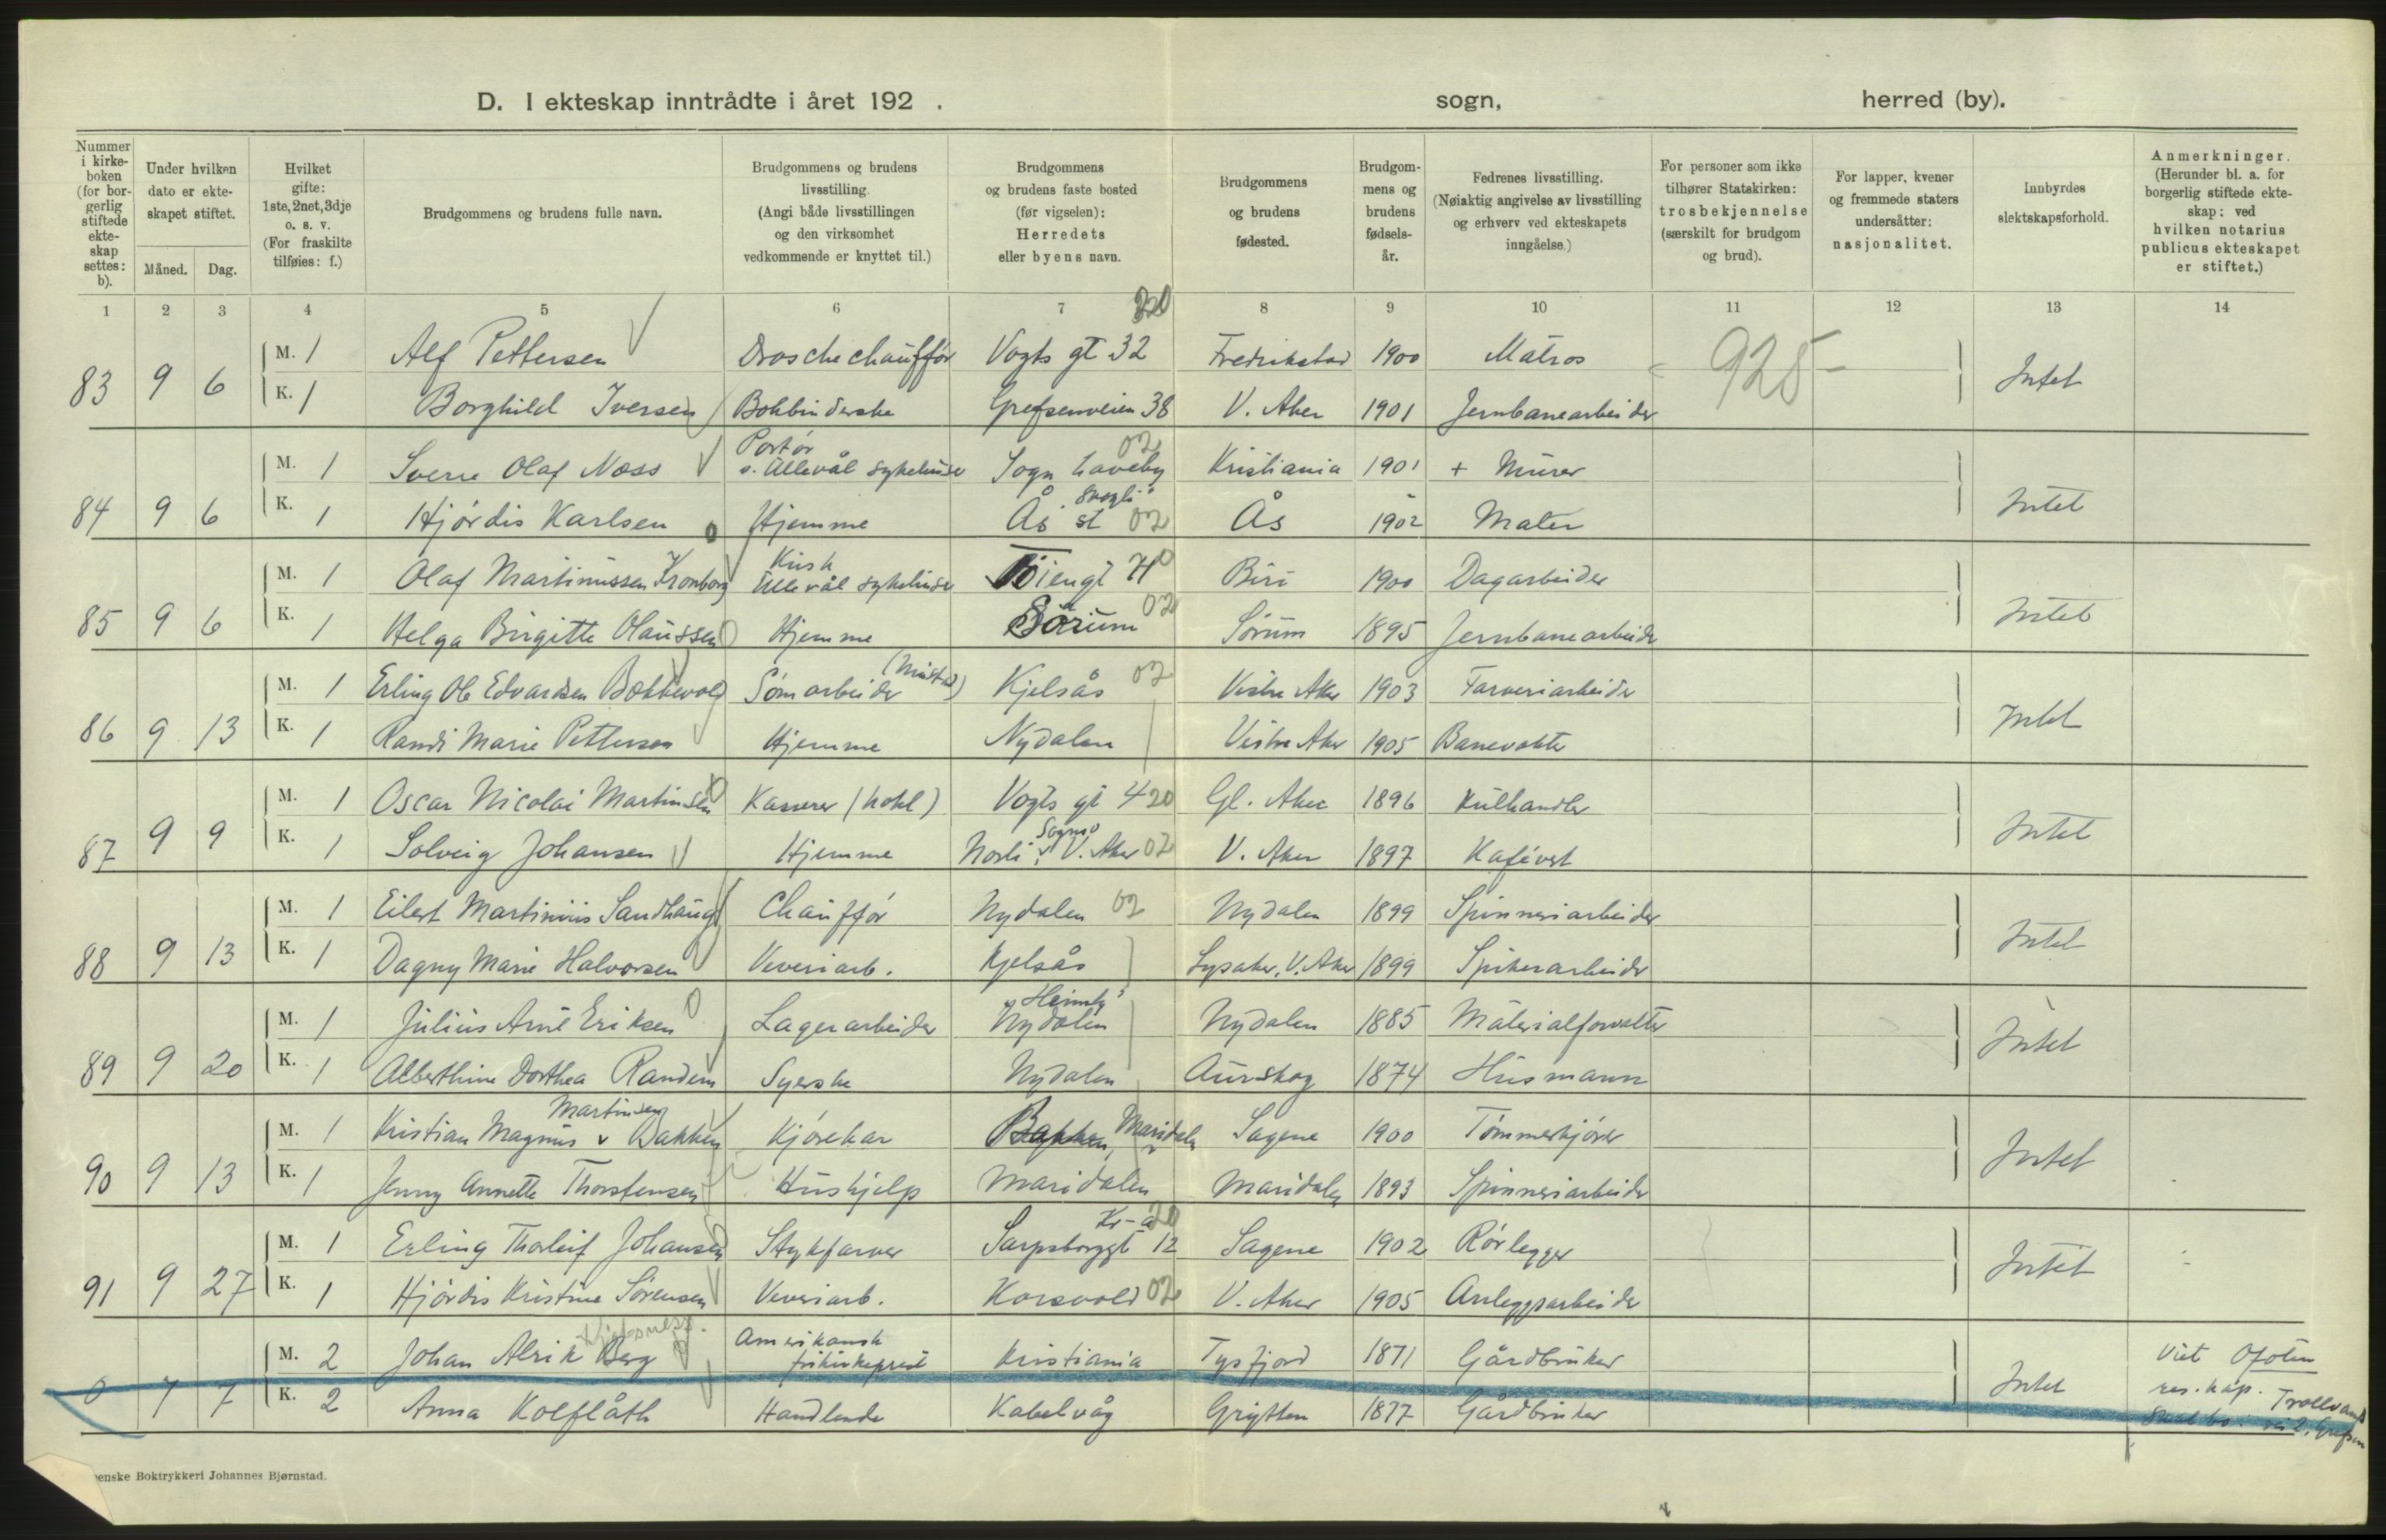 D. I ekteskap inntrådte i året 192 . sogn, herred (by).
Nummer i kirke-boken (for bor-gerlig stiftede ekte-skap settes: b).
Under hvilken dato er ekte-skapet stiftet.
Måned. Dag.
Hvilket gifte: 1ste, 2net, 3dje o. s. v. (For fraskilte tilføies: f.)
Brudgommens og brudens fulle navn.
Brudgommens og brudens livsstilling. (Angi både livsstillingen og den virksomhet vedkommende er knyttet til.)
Brudgommens og brudens faste bosted (før vigselen): Herredets eller byens navn.
Brudgommens og brudens fødested.
Brudgom-mens og brudens fødsels-år.
Fedrenes livsstilling. (Nøiaktig angivelse av livsstilling og erhverv ved ekteskapets inngåelse.)
For personer som ikke tilhører Statskirken: trosbekjennelse (særskilt for brudgom og brud).
For lapper, kvener og fremmede staters undersåtter: nasjonalitet.
Innbyrdes slektskapsforhold.
Anmerkninger. (Herunder bl. a. for borgerlig stiftede ekte-skap: ved hvilken notarius publicus ekteskapet er stiftet.)
1 2 3 4 5 6 7 8 9 10 11 12 13 14
83 9 6 M. 1 Alf Pettersen Droschechauffør Vogts gt 32 Fredrikstad 1900 Matros 925 Intet
K. 1 Borghild Iversen Bokbinderske Grefsenveien 38 V. Aker 1901 Jernbanearbeider
84 9 6 M. 1 Sverre Olaf Næss Portør v. Ullevål sykehuse Sogn haveby 02 Kristiania 1901 + Murer Intet
K. 1 Hjørdis Karlsen Hjemme Ås st 02 Ås 1902 Maler
85 9 6 M. 1 Olaf Martinussen Kronborg Kusk Ullevål sykehuse Biri 1900 Dagarbeider Intet
K. 1 Helga Birgitte Olaussen Hjemme Sørum 02 Sørum 1895 Jernbanearbeider
86 9 13 M. 1 Erling Ole Edvardsen Bækkevold Sømarbeider (Mustad) Kjelsås 02 Vestre Aker 1903 Farveriarbeider Intet
K. 1 Randi Marie Pettersen Hjemme Nydalen Vestre Aker 1905 Banevokter
87 9 9 M. 1 Oscar Nicolai Martinsen Kasserer (hotel) Vogts gt 4 20 Gl. Aker 1896 Kulhandler Intet
K. 1 Solveig Johansen Hjemme V. Aker 02 V. Aker 1897 Kafévert
88 9 13 M. 1 Eilert Martinius Sandhaug Chauffør Nydalen 02 Nydalen 1899 Spinneriarbeider Intet
K. 1 Dagny Marie Halvorsen Veveriarb. Kjelsås Lysaker, V. Aker 1899 Spikerarbeider
89 9 20 M. 1 Julius Arne Eriksen Lagerarbeider "Heimly" Nydalen Nydalen 1885 Materialforvalter Intet
K. 1 Alberthine Dorthea Randem Syerske Nydalen Aurskog 1874 Husmann
90 9 13 M. 1 Kristian Magnus Martinsen Bakken Kjørekar Bakken, Maridalen Sagene 1900 Tømmerkjører Intet
K. 1 Jenny Annette Thorstensen Hushjelp Maridalen Maridalen 1893 Spinneriarbeider
91 9 27 M. 1 Erling Thorleif Johansen Stykfarver Sarpsborggt 12 Kr-a 20 Sagene 1902 Rørlegger Intet
K. 1 Hjørdis Kristine Sørensen Veveriarb. Korsvold 02 V. Aker 1905 Anleggsarbeider
0 7 7 M. 2 Johan Alrik Berg Amerikansk frikirkeprest Kristiania Tysfjord 1871 Gårdbruker Intet Viet Ofoten res. kap.
K. 2 Anna Kolflåth Handlende Kabelvåg Grytten 1877 Gårdbruker Skal bo: Trollvann
enske Boktrykkeri Johannes Bjørnstad.